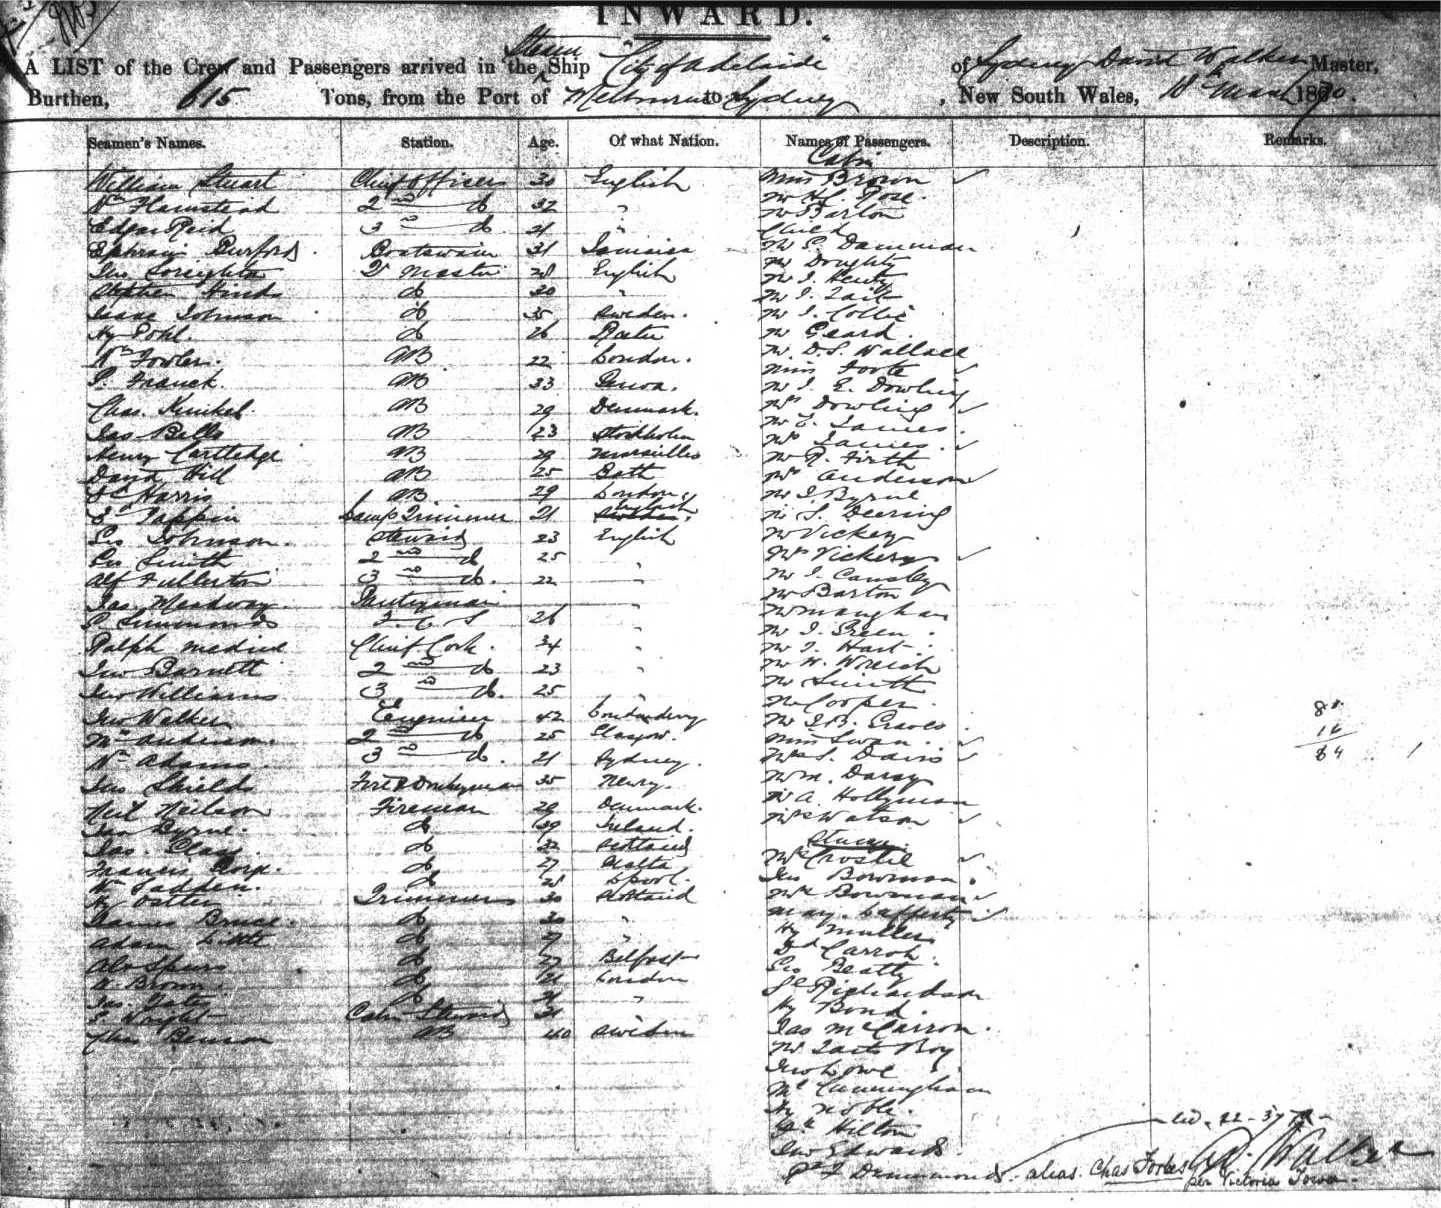 INWARD.
A LIST of the Crew and Passengers arrived in the Steam Ship "City of Adelaide" of Sydney David Walker Master,
Burthen, 615 Tons, from the Port of Melbourne to Sydney, New South Wales, 10th March 1870.
Seamen's Names. Station. Age. Of what Nation. Names of Passengers. Description. Remarks.
Cabin
William Stuart Chief Officer 30 English Miss Brown
Wm Flamstead 2nd do 32 " Mr H. Rose
Edgar Reid 3rd do 21 " Mr Barton
Child
Ephraim Burford Boatswain 31 Jamaica Mr Damman
Jno Qr Master 28 English Mr Doughty
Stephen Hinds do 30 " Mr J. Henty
Isaac Johnson do 35 Sweden. Mr J. Tait
Hy Pohl. do 26 Mr J. Collie
Mr Geard
Wm Fowler. AB 22 London. Mr D. S. Wallace
P. Franck. AB 33 Genoa. Miss Foote
Mr J. E. Dowling
Chas. Kunkel. AB 29 Denmark. Mrs Dowling
Jas Bells AB 23 Stockholm Mr James.
Henry Cartledge AB 29 Marseilles Mrs James
David Hill AB 25 Bath Mr R. Firth
Mrs Anderson
Harris AB 29 London. Mr J. Byrne
E. Tappin Lamp Trimmer 21 English Mr S. Deering
Geo Johnson. Steward 23 English Mr Vickery
Geo Smith 2nd do 25 Mrs Vickery
Alf Fullerton 3rd do. 22 " Mr J. Causley
Jas. Meadway. Pantryman " Mr Barton
P. Simmonds 26 " Mr Maughan
Ralph Chief Cook. 34 " Mr J. Green.
Mr J. Hart
Jno Barnett 2nd do 23 " Mr W.
Jno Williams 3rd do. 25 " Mr Smith
Mr Cooper
Jno Walker Engineer 42 Londonderry Mr J. B. Graves
Anderson. 2nd do 25 Glasgow. Miss Swan
Wm Adams. 3rd do. 21 Sydney. Mrs S. Davis
Jno Shields Fore & Donkeyman 35 Newry. Mr M. Darcy
Neil Neilson Fireman 29 Denmark. Mr A. Hollyman
Jas Byrne. do 39 Ireland. Mrs Watson
Jas. Clay do 32 Scotland Steerage
Francis do 27 Malta Mrs Crostie
Wm Sadden. do 28 Lpool. Jno Bowman.
Hy Oster Trimmers 30 Scotland Mrs Bowman
James Bruce. do 30 " May. Lafferty
Adam Little do 27 " Hy Muller
Alex Spurs do 27 Belfast D Carroh.
W. Brown. do 21 London Geo Beatty
Jas. Yates do 21 " Richardson
Wright Cabin Steward 31 Hy Bond.
Chas Benson AB 40 Sweden Jas McCarron.
Mr Tait's Boy
Jno Lowe
Cunningham
Hy Noble.
Hilton
Jno Edwards.
Drummond. alias. Chas Forbes
per Victoria Town.
D. Walker
80
84